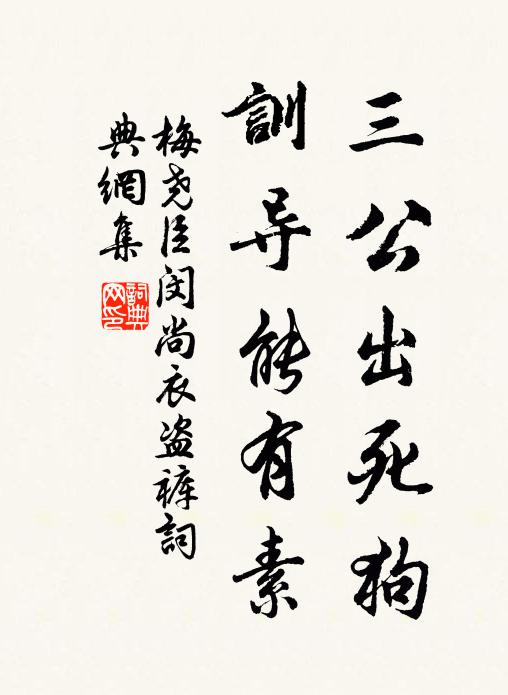 三公出死狗
訓导能有素
梅尧臣闵尚衣盗裤詞
典網集
詞典网印